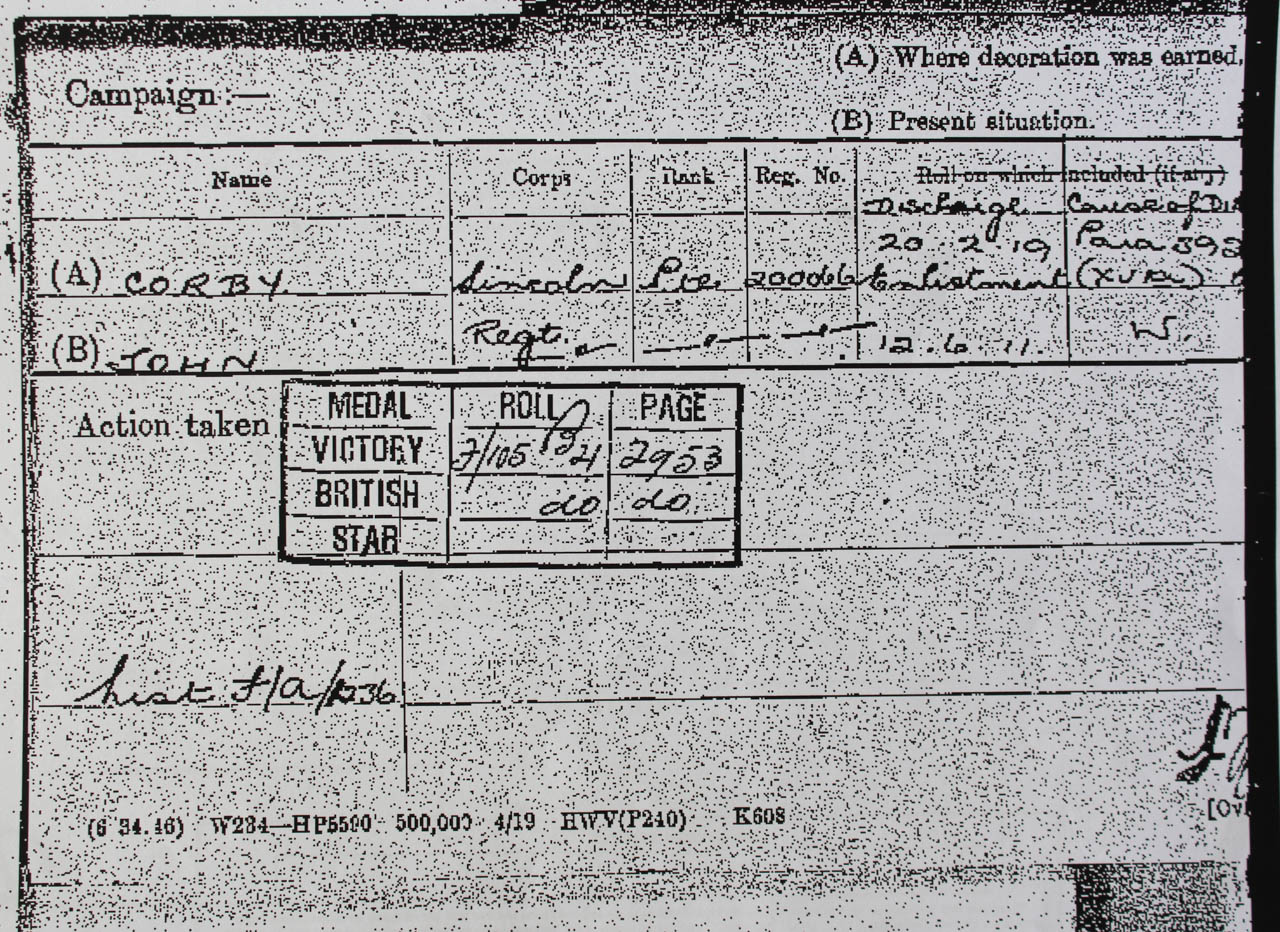 (A) Where decoration was earned.
Campaign:—
(B) Present situation.
Name Corps Rank Reg. No. Roll on which included (if any)
Discharge Cause of Dis
20.2.19 Para 392
(A) CORBY. Lincoln Pte. 200066 Enlistment (XVI
(B) JOHN Regt. 12.6.11. W.
Action taken
MEDAL ROLL PAGE
VICTORY 2953
BRITISH do do.
STAR
List F/A/
(6 34.46) W234—HP5590 500,000 4/19 HWV(P240) K608
[Ov